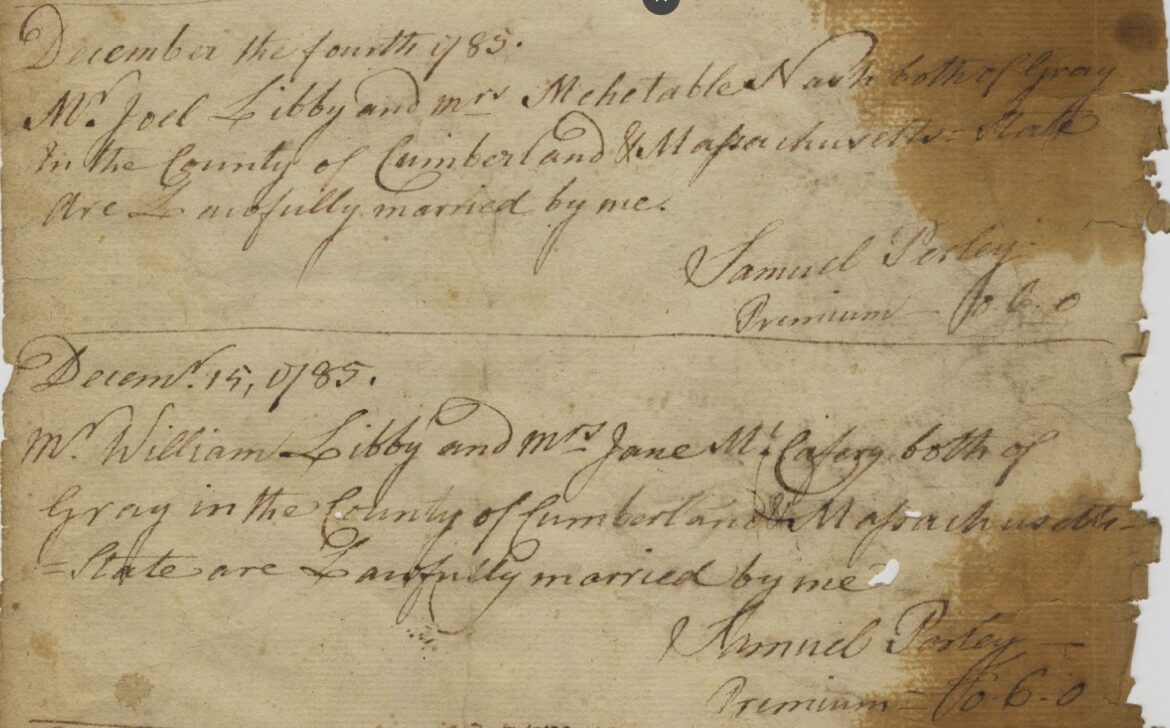 December the fourth 1785.
Mr. Joel Libby and mrs Mehetable Nash both of Gray
in the County of Cumberland & Massachusetts- State
are Lawfully married by me.
Samuel Perley
Premium — £0. 6. 0
Decemr. 15, 1785.
Mr William Libby and mrs Jane Mc Cafery both of
Gray in the County of Cumberland & Massachusetts-
=State are Lawfully married by me
Samuel Perley
Premium — £0. 6. 0